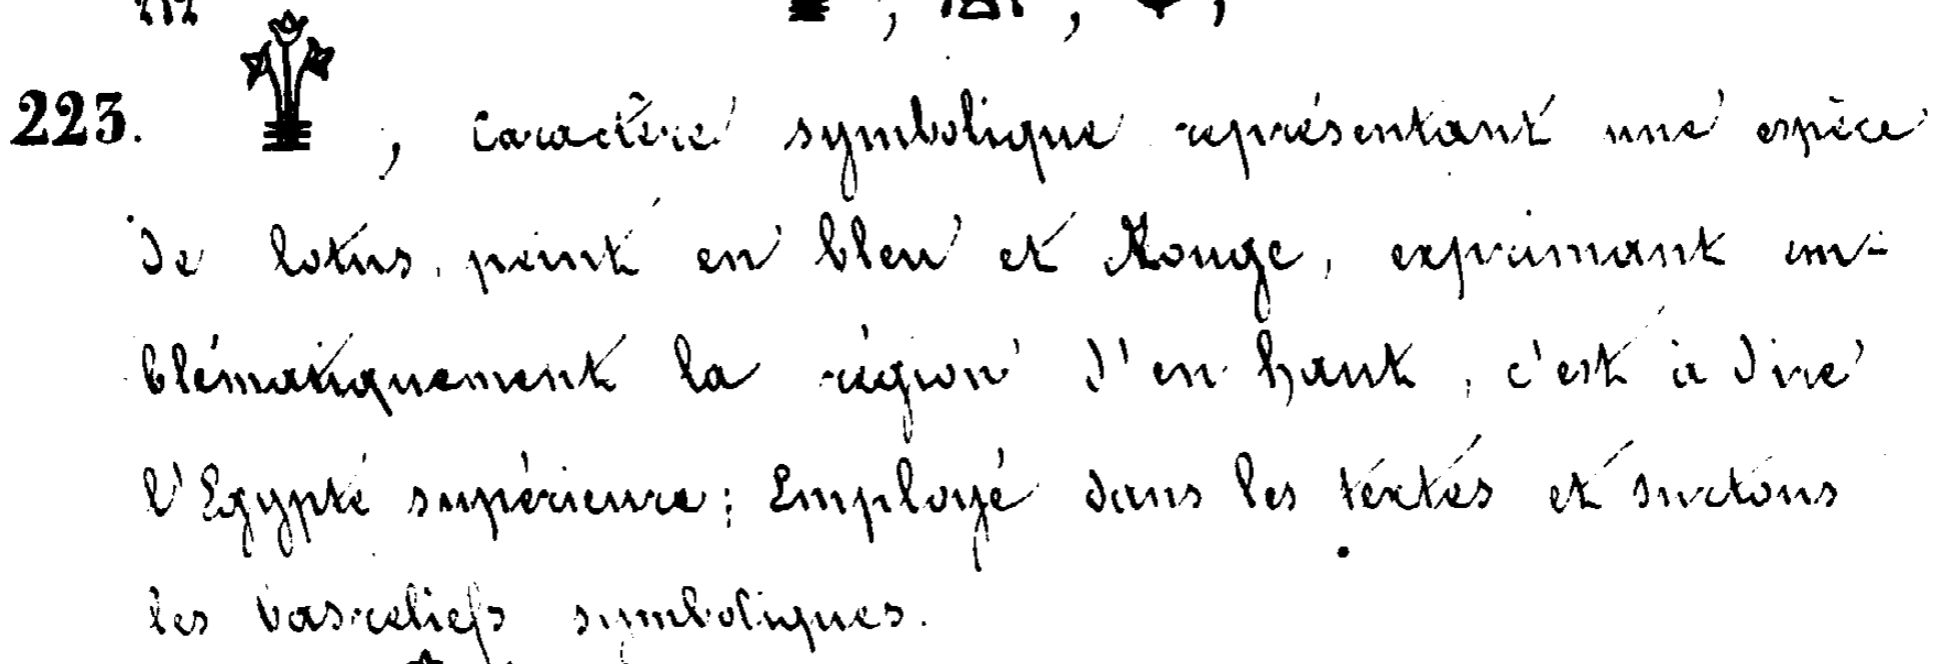 223. , caractère symbolique représentant une espèce
de lotus, peint en bleu et Rouge, exprimant em-
blématiquement la région d'en haut, c'est à dire
l'Egypte supérieure; Employé dans les textes et surtous
les basreliefs symboliques.